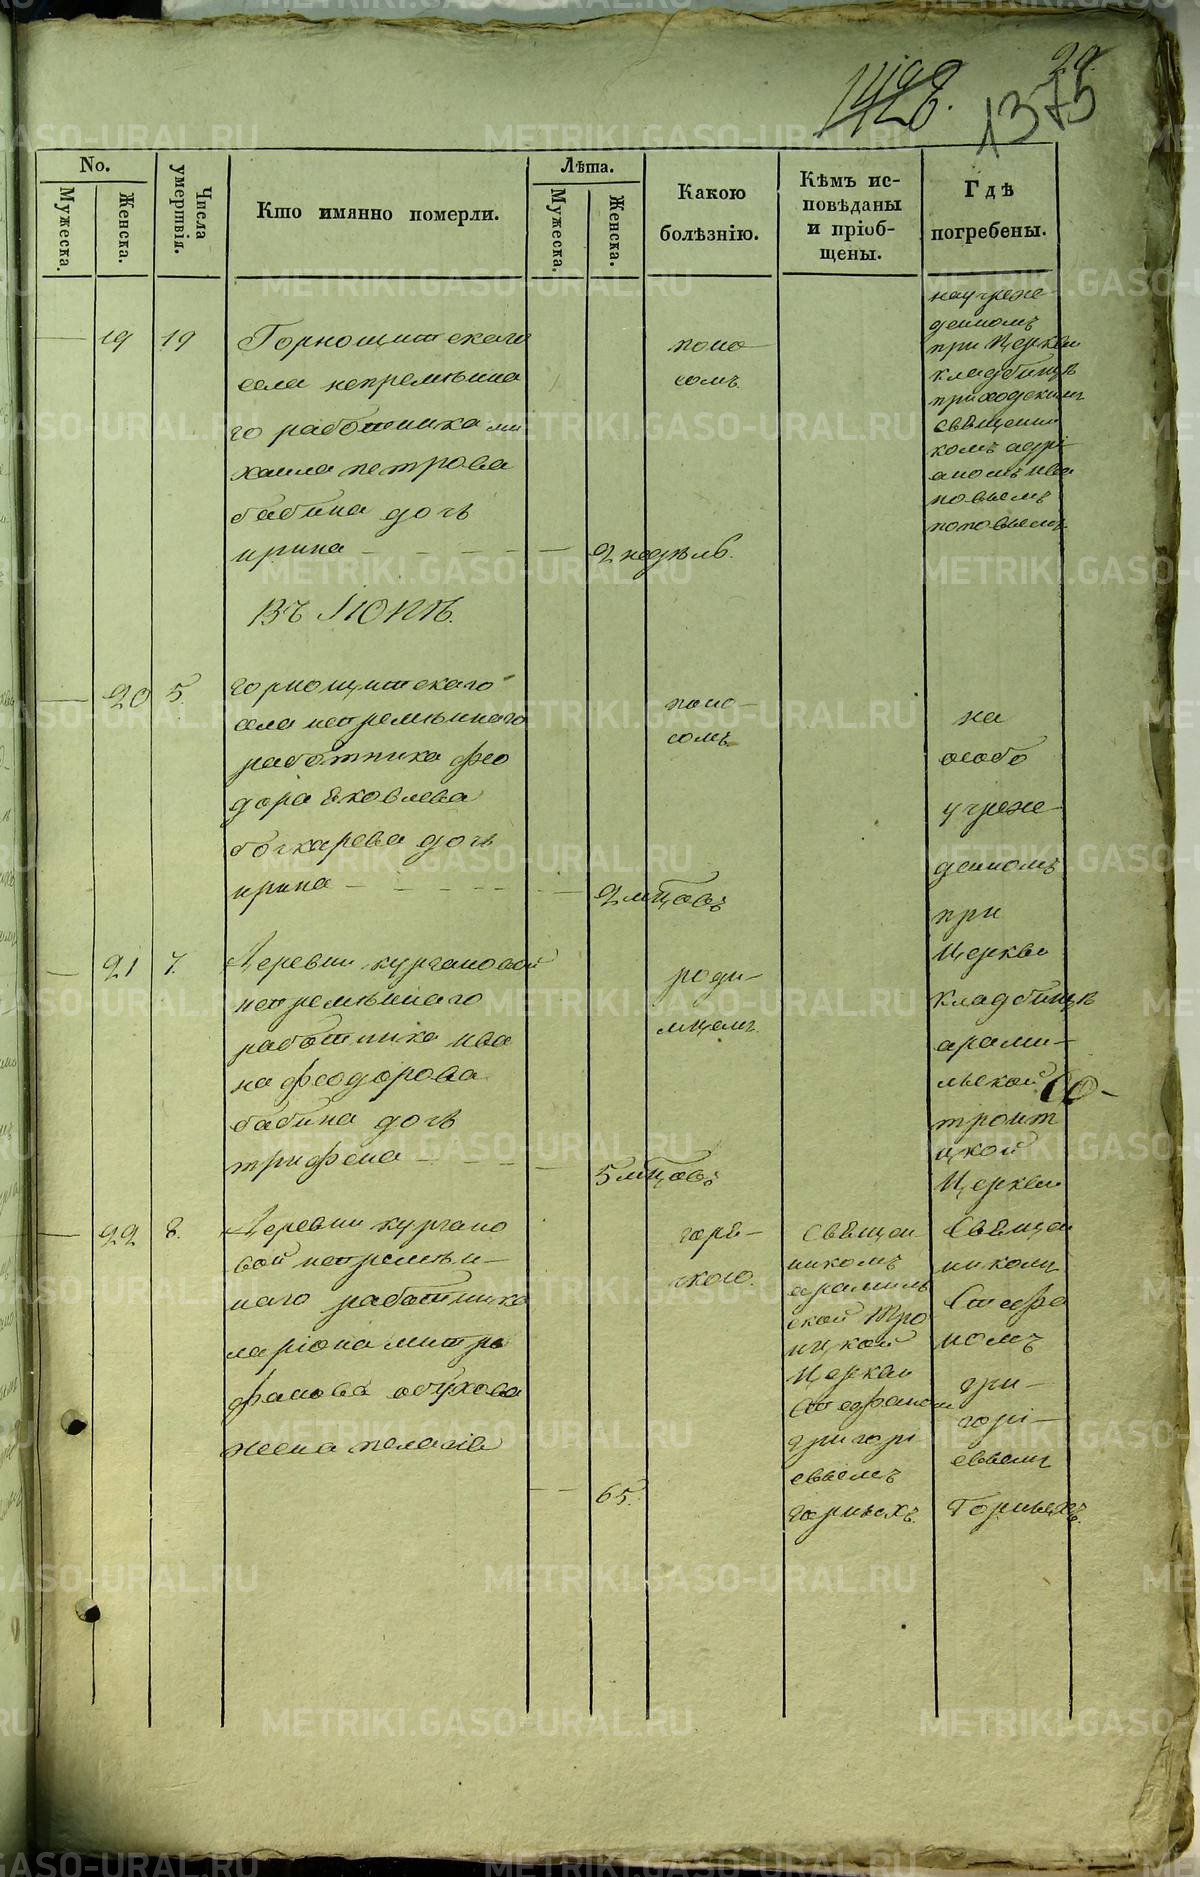 29.
1375
No.
Мужеска.
Женска.
Числа умершвія.
Кто имянно померли.
Лѣта.
Мужеска.
Женска.
Какою
болѣзнію.
Кѣмъ ис-
повѣданы
и пріоб-
щены.
Гдѣ
погребены.
19 19
Горнощитскаго
села непремѣнна
го работника ми
хаила петрова
бабина дочь
ирина
2 недѣль.
поно
сомъ.
на учреж-
денномъ
при Церкви
кладбищѣ
приходскимъ
свѣщенни
комъ адрі
аномъ ива
новымъ
поповымъ
Въ Іюнѣ.
20 5.
горнощитскаго
села непремѣннаго
работника фео
дора Яковлева
бочкарева дочь
ирина
2 мцовъ
поно-
сомъ
на
особо
учреж-
денномъ
при
Церкви
кладбищѣ
арами-
льской
троит
цкой
Церкви
21 7.
Деревни кургановой
непремѣннаго
работника ива
на феодорова
бабина дочь
трифена
5 мцовъ
роди-
мцомъ.
22 8.
Деревни кургано
вой непремѣн-
наго работника
ларіона митро
фанова обухова
жена пелагія
65.
горя-
чкою.
Свѣщен
никомъ
арамиль
ской Тро
ицкой
Церкви
Стефаномъ
григорі
евымъ
горныхъ.
Свѣщен
никомъ
Стефа
номъ
гри-
горі-
евымъ
Горныхъ.
METRIKI.GASO-URAL.RU